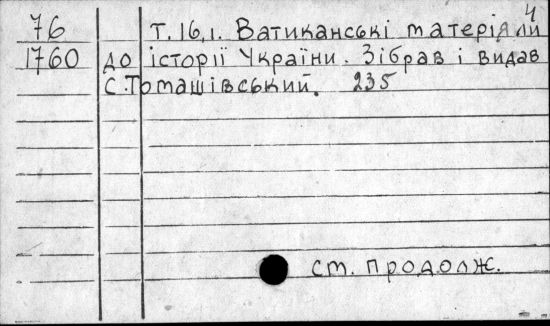 4
76 Т. 16,1. Ватиканські матеріяли
1760 до історії України. Зібрав і видав
С. Томашівський. 235
ст. продолж.